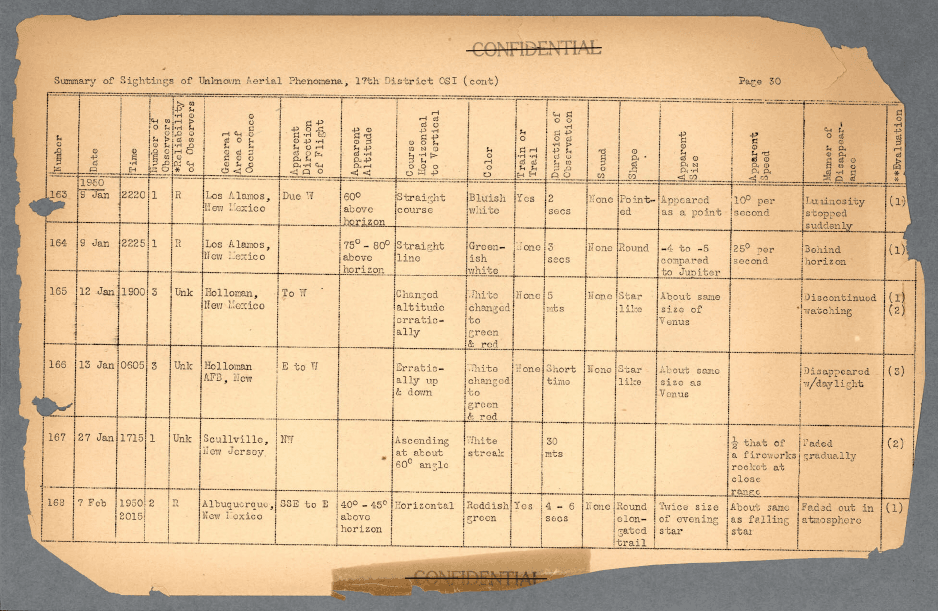 CONFIDENTIAL
Summary of Sightings of Unknown Aerial Phenomena, 17th District OSI (cont) Page 30
Number
Date
Time
Number of Observers
*Reliability of Observers
General Area of Occurrence
Apparent Direction of Flight
Apparent Altitude
Course Horizontal to Vertical
Color
Train or Trail
Duration of Observation
Sound
Shape
Apparent Size
Apparent Speed
Manner of Disappear-ance
**Evaluation
1950
163 9 Jan 2220 1 R Los Alamos, Due W 60° Straight Bluish Yes 2 None Point- Appeared 10° per Luminosity (1)
New Mexico above course white secs ed as a point second stopped
horizon suddenly
164 9 Jan 2225 1 R Los Alamos, 75° - 80° Straight Green- None 3 None Round -4 to -5 25° per Behind (1)
New Mexico above line ish secs compared second horizon
horizon white to Jupiter
165 12 Jan 1900 3 Unk Holloman, To W Changed White None 5 None Star About same Discontinued (1)
New Mexico altitude changed mts like size of watching (2)
erratic- to Venus
ally green
& red
166 13 Jan 0605 3 Unk Holloman E to W Erratic- White None Short None Star About same Disappeared (3)
AFB, New ally up changed time like size as w/daylight
& down to Venus
green
& red
167 27 Jan 1715 1 Unk Scullville, NW Ascending White 30 ½ that of Faded (2)
New Jersey at about streak mts a fireworks gradually
60° angle rocket at
close
range
168 7 Feb 1950 2 R Albuquerque, SSE to E 40° - 45° Horizontal Reddish Yes 4 - 6 None Round Twice size About same Faded out in (1)
2015 New Mexico above green secs elon- of evening as falling atmosphere
horizon gated star star
trail
CONFIDENTIAL